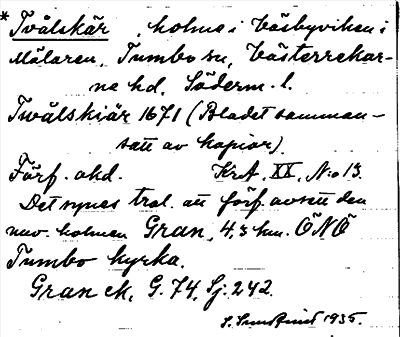 * Tvålskär, holme i Väsbyviken i
Mälaren, Tumbo sn, Västerrekar-
ne hd, Söderm. l.
Twålskiär 1671 (Bladet samman-
satt av kopior).
Förf. okd. KrA, XX, N:o 13.
Det synes trol. att förf. avsett den
nuv. holmen Gran, 4,3 km. ÖNÖ
Tumbo kyrka.
Gran ek, G. 74, Sj. 242.
1935.